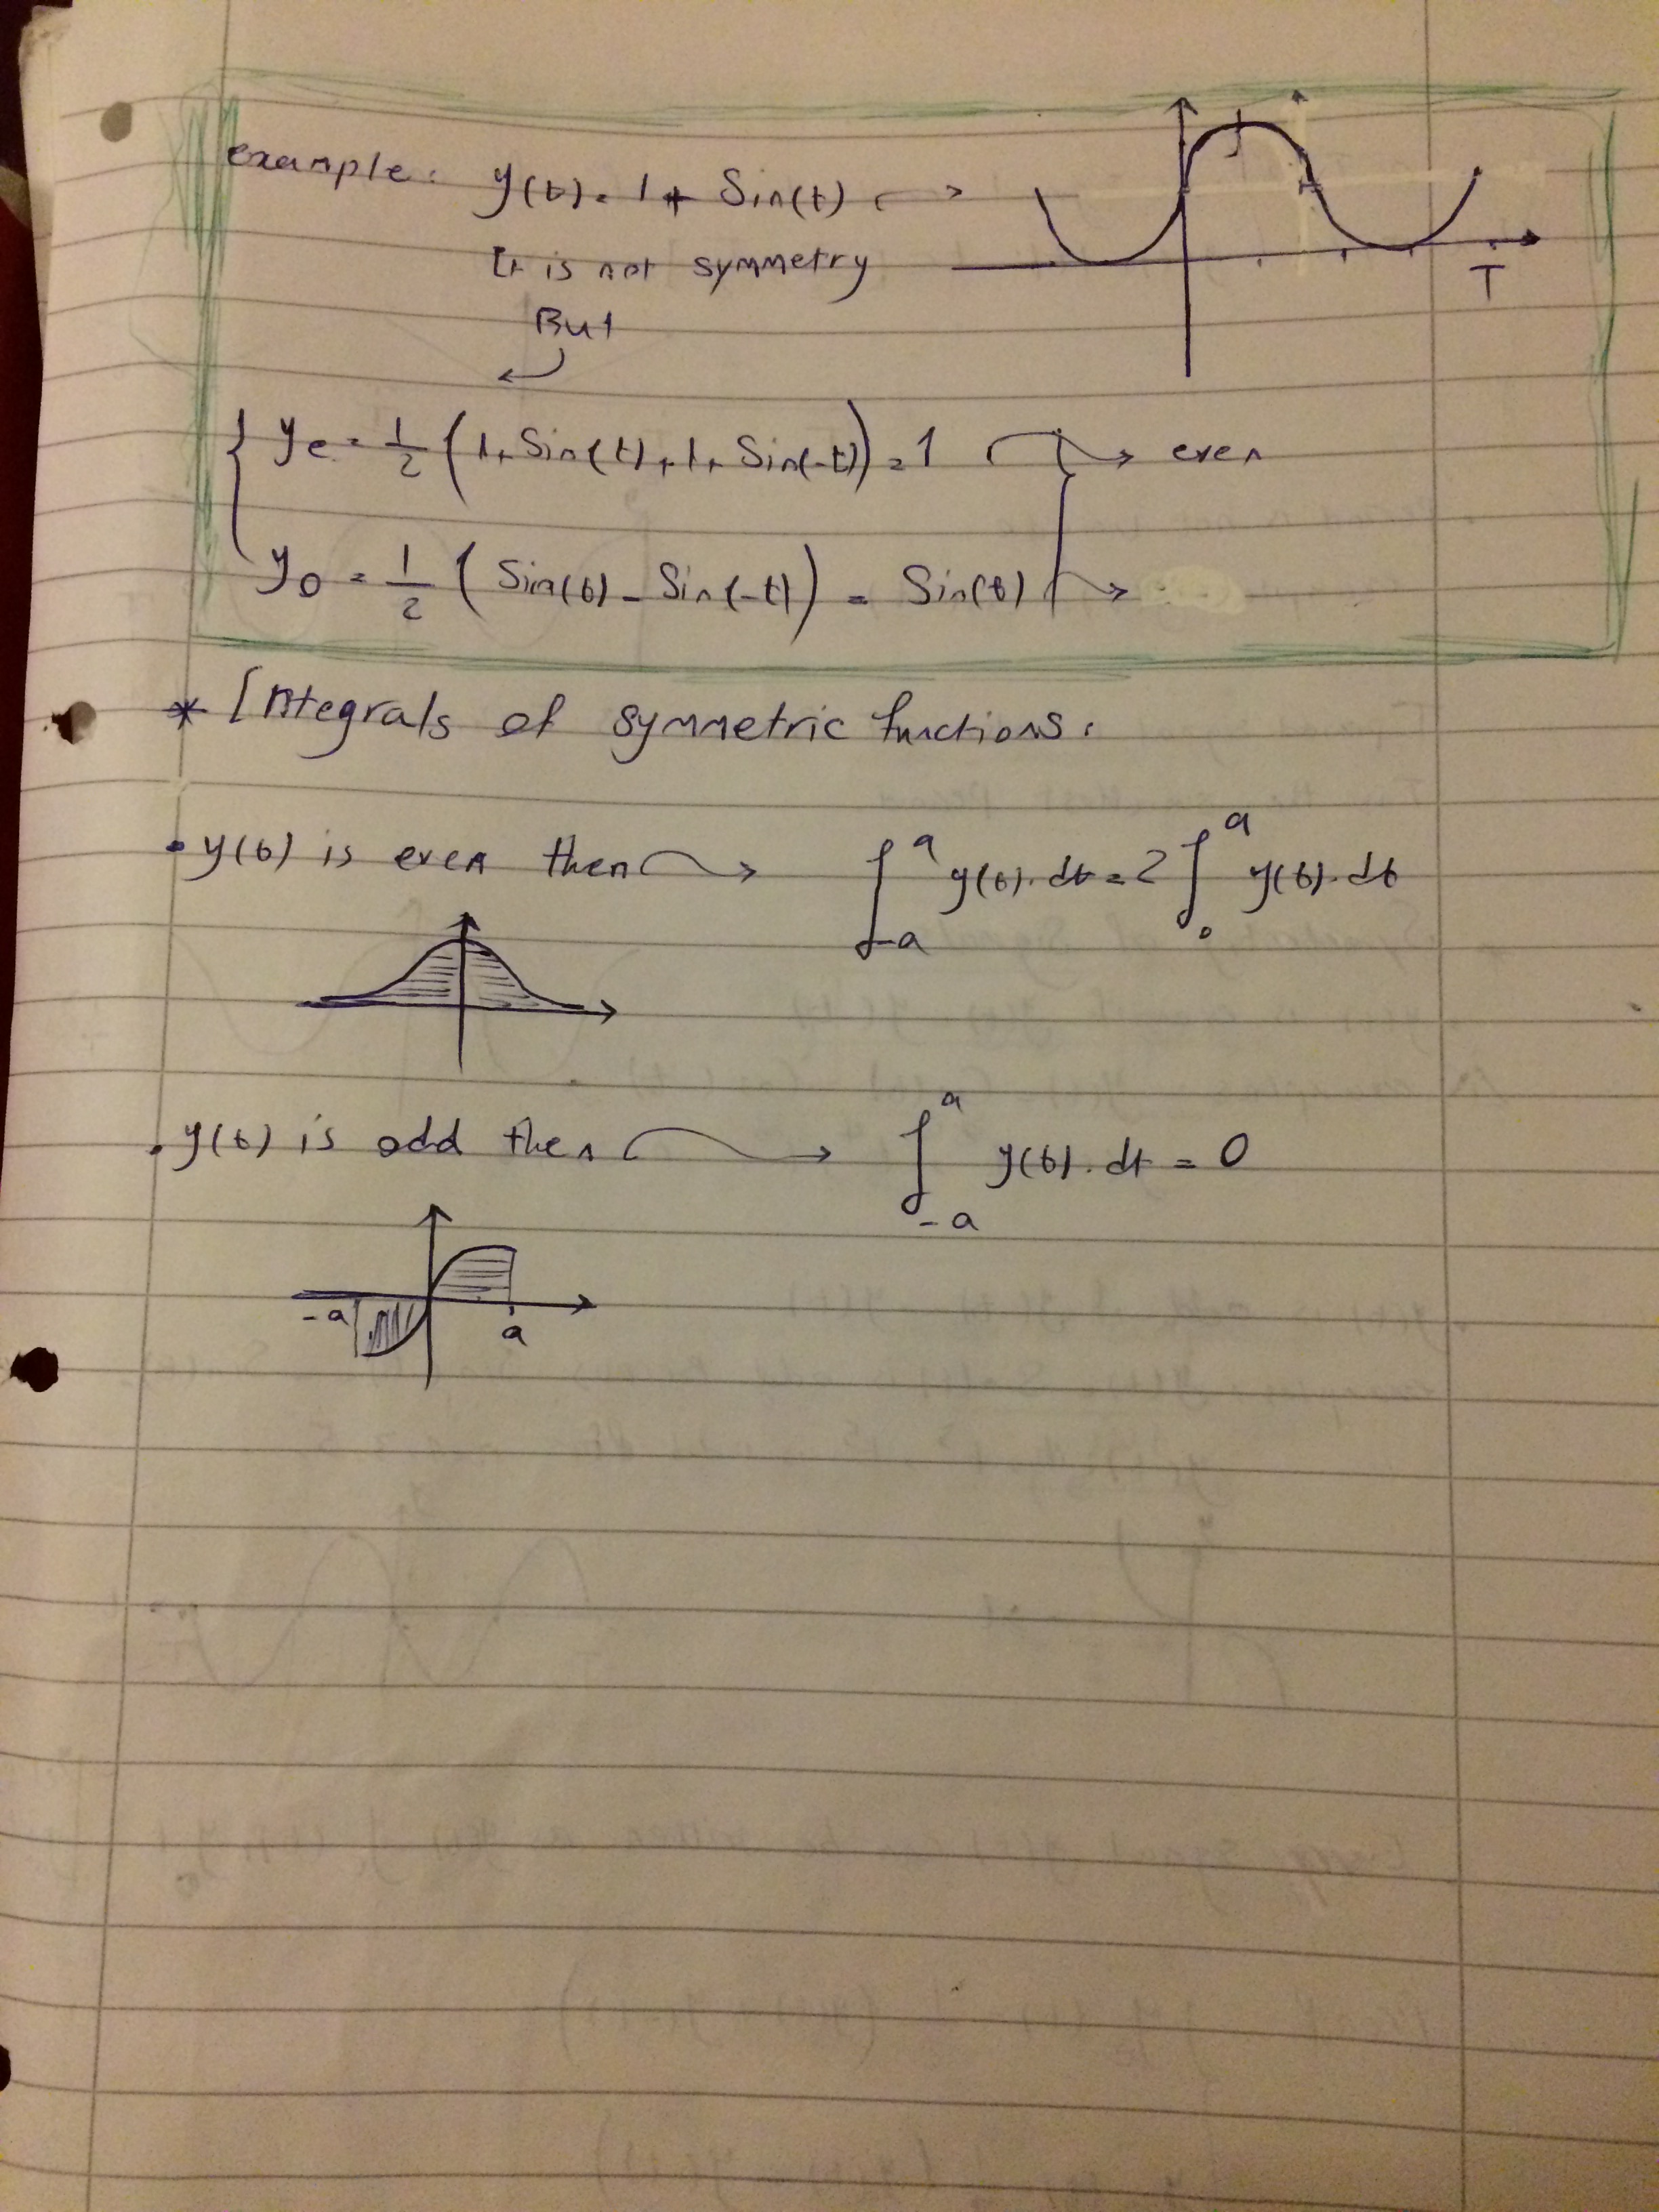 example: y(t) = 1 + Sin(t)
It is not symmetry
T
But
ye = 1/2 (1 + Sin(t) + 1 + Sin(-t)) = 1 → even
yo = 1/2 (Sin(t) - Sin(-t)) = Sin(t) →
* Integrals of symmetric functions:
• y(t) is even then → ∫_{-a}^{a} y(t).dt = 2∫_{0}^{a} y(t).dt
• y(t) is odd then → ∫_{-a}^{a} y(t).dt = 0
-a a